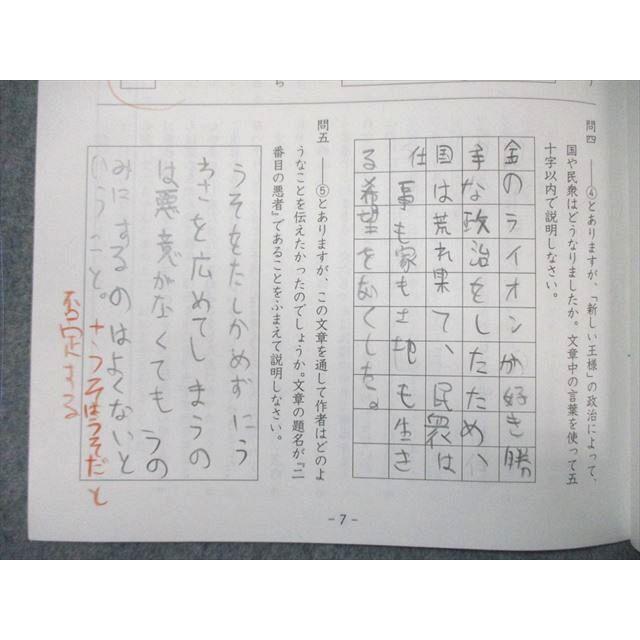 問四 ――④とありますが、「新しい王様」の政治によって、
国や民衆はどうなりましたか。文章中の言葉を使って五
十字以内で説明しなさい。
金のライオンが好き勝
手な政治をしたため、
国は荒れ果て、民衆は
仕事も家も土地も生き
る希望をなくした。
問五 ――⑤とありますが、この文章を通して作者はどのよ
うなことを伝えたかったのでしょうか。文章の題名が『二
番目の悪者』であることをふまえて説明しなさい。
うそをたしかめずにう
わさを広めてしまうの
は悪意がなくても うの
みにするのはよくないと
いうこと。
うそはうそだと
否定する
-7-